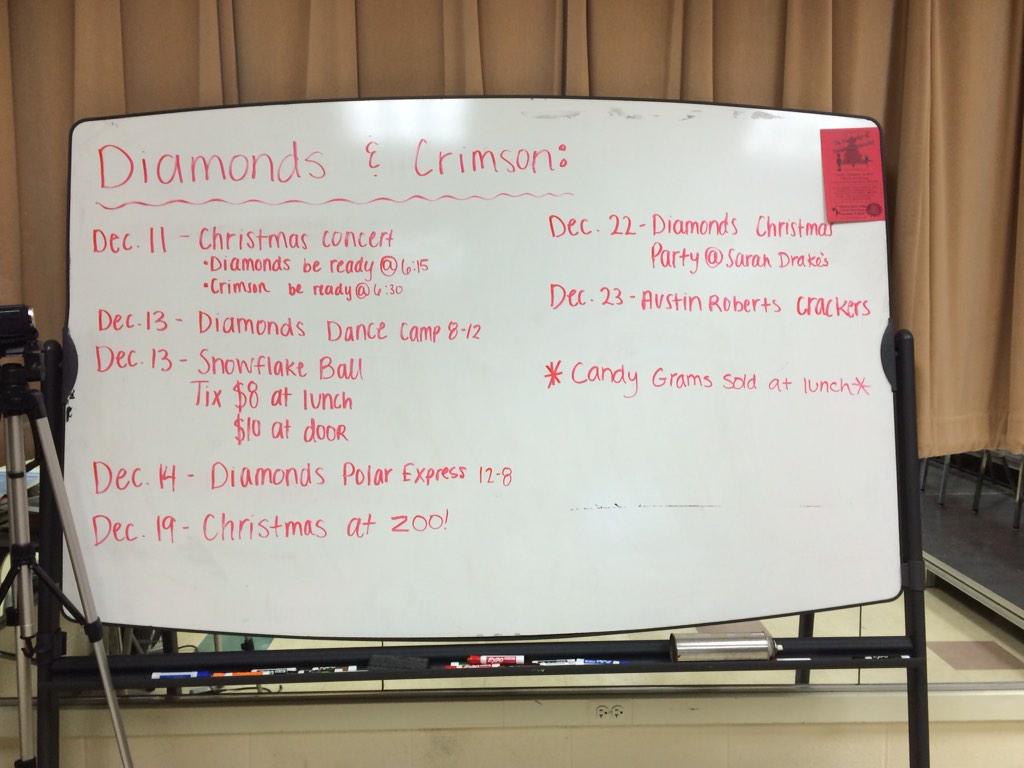 Diamonds & Crimson:
Dec. 11 - Christmas concert
•Diamonds be ready @ 6:15
•Crimson be ready @ 6:30
Dec. 13 - Diamonds Dance Camp 8-12
Dec. 13 - Snowflake Ball
Tix $8 at lunch
$10 at door
Dec. 14 - Diamonds Polar Express 12-8
Dec. 19 - Christmas at ZOO!
Dec. 22 - Diamonds Christmas
Party @ Sarah Drake's
Dec. 23 - Austin Roberts crackers
* Candy Grams sold at lunch *
EXPO